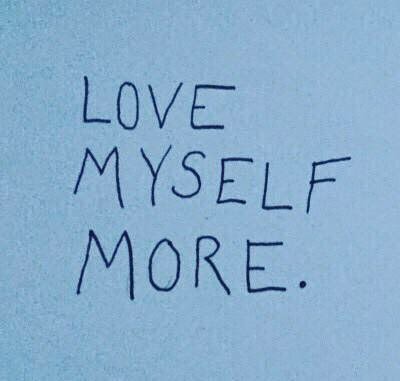 LOVE
MYSELF
MORE.